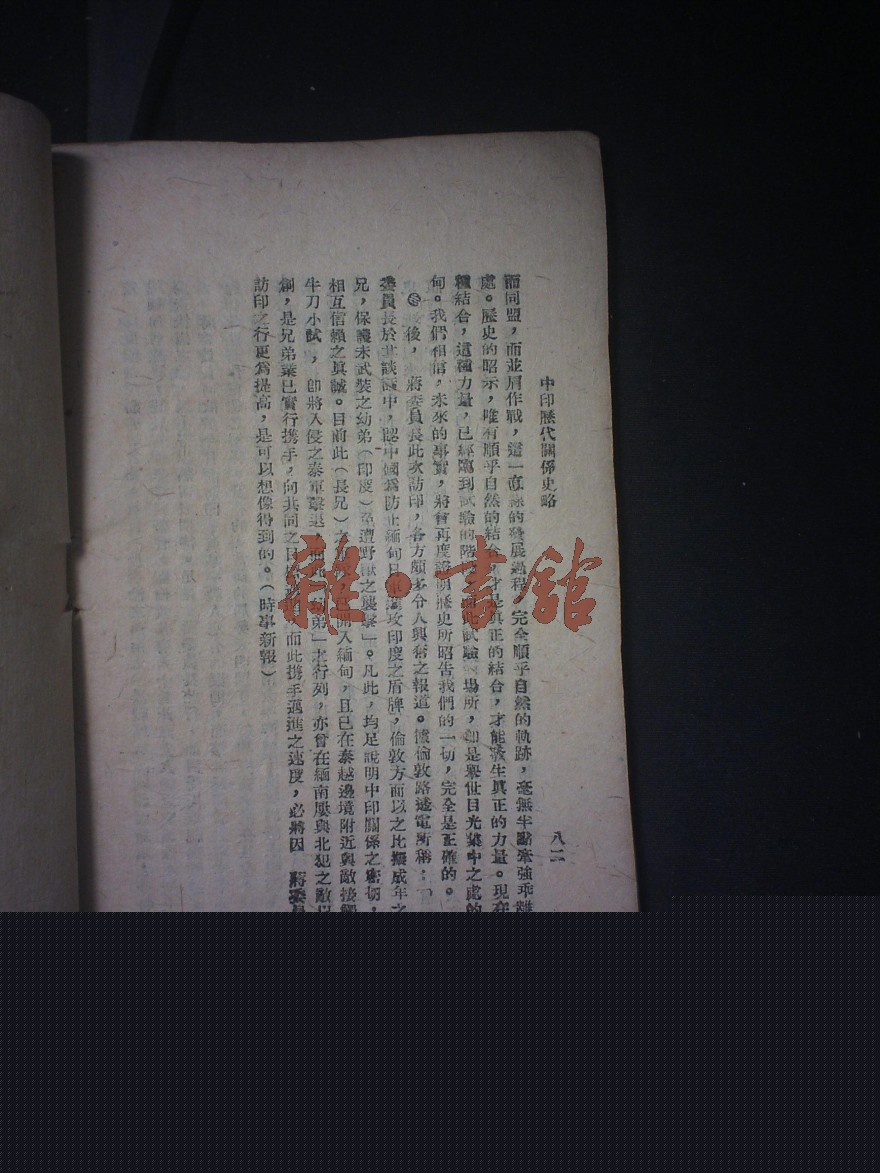 中印歷代關係史略
八二
而同盟，而並肩作戰，這一直線的發展過程，完全順乎自然的軌跡，毫無半點牽強乖離
處。歷史的昭示，唯有順乎自然的結合，才是真正的結合，才能發生真正的力量。現在
種結合，這種力量，已經臨到試驗的階段，而此試驗場所，即是舉世目光集中之處的
甸。我們相信，未來的事實，將會再度證明歷史所昭告我們的一切，完全是正確的。
後，蔣委員長此次訪印，各方頗多令人興奮之報道。據倫敦路透電所稱，
委員長於其談話中，認中國為防止緬甸日軍進攻印度之盾牌，倫敦方面以之比擬成年之
兄，保護未武裝之幼弟（印度）免遭野獸之襲擊」。凡此，均足說明中印關係之密切，
相互信賴之眞誠。目前此（長兄）之軍隊，已開入緬甸，且已在泰越邊境附近與敵接觸
牛刀小試，即將入侵之泰軍擊退，而此「幼弟」之行列，亦曾在緬南屢與北犯之敵以
創，是兄弟業已實行携手，向共同之目標邁進，而此携手邁進之速度，必將因 蔣委員
訪印之行更為提高，是可以想像得到的。（時事新報）
雜·書館